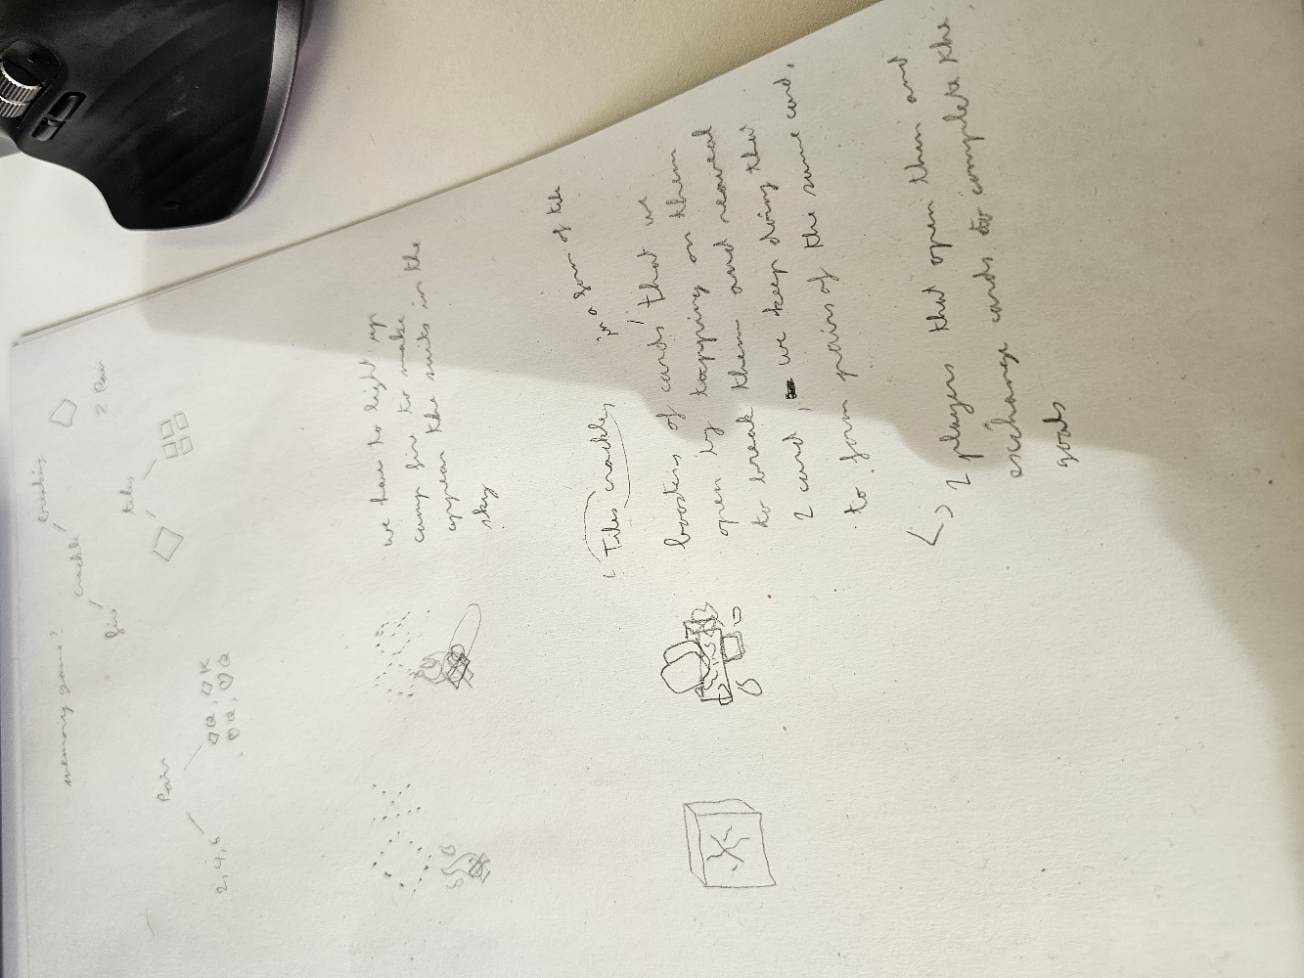 memory game?
breaking
crackle
fire
2 Pair
tiles
Pair
2, 4, 6
◇Q, ◇K
♡Q, ♡Q
we have to light up
camp fire to make
appear the suits in the
sky
Tiles crackle,
in a form of tile
boosters of cards that we
open by tapping on them
to break them and reaveal
2 card, we keep doing that
to form pairs of the same card.
2 players that open then and
exchange cards to complete the
goals